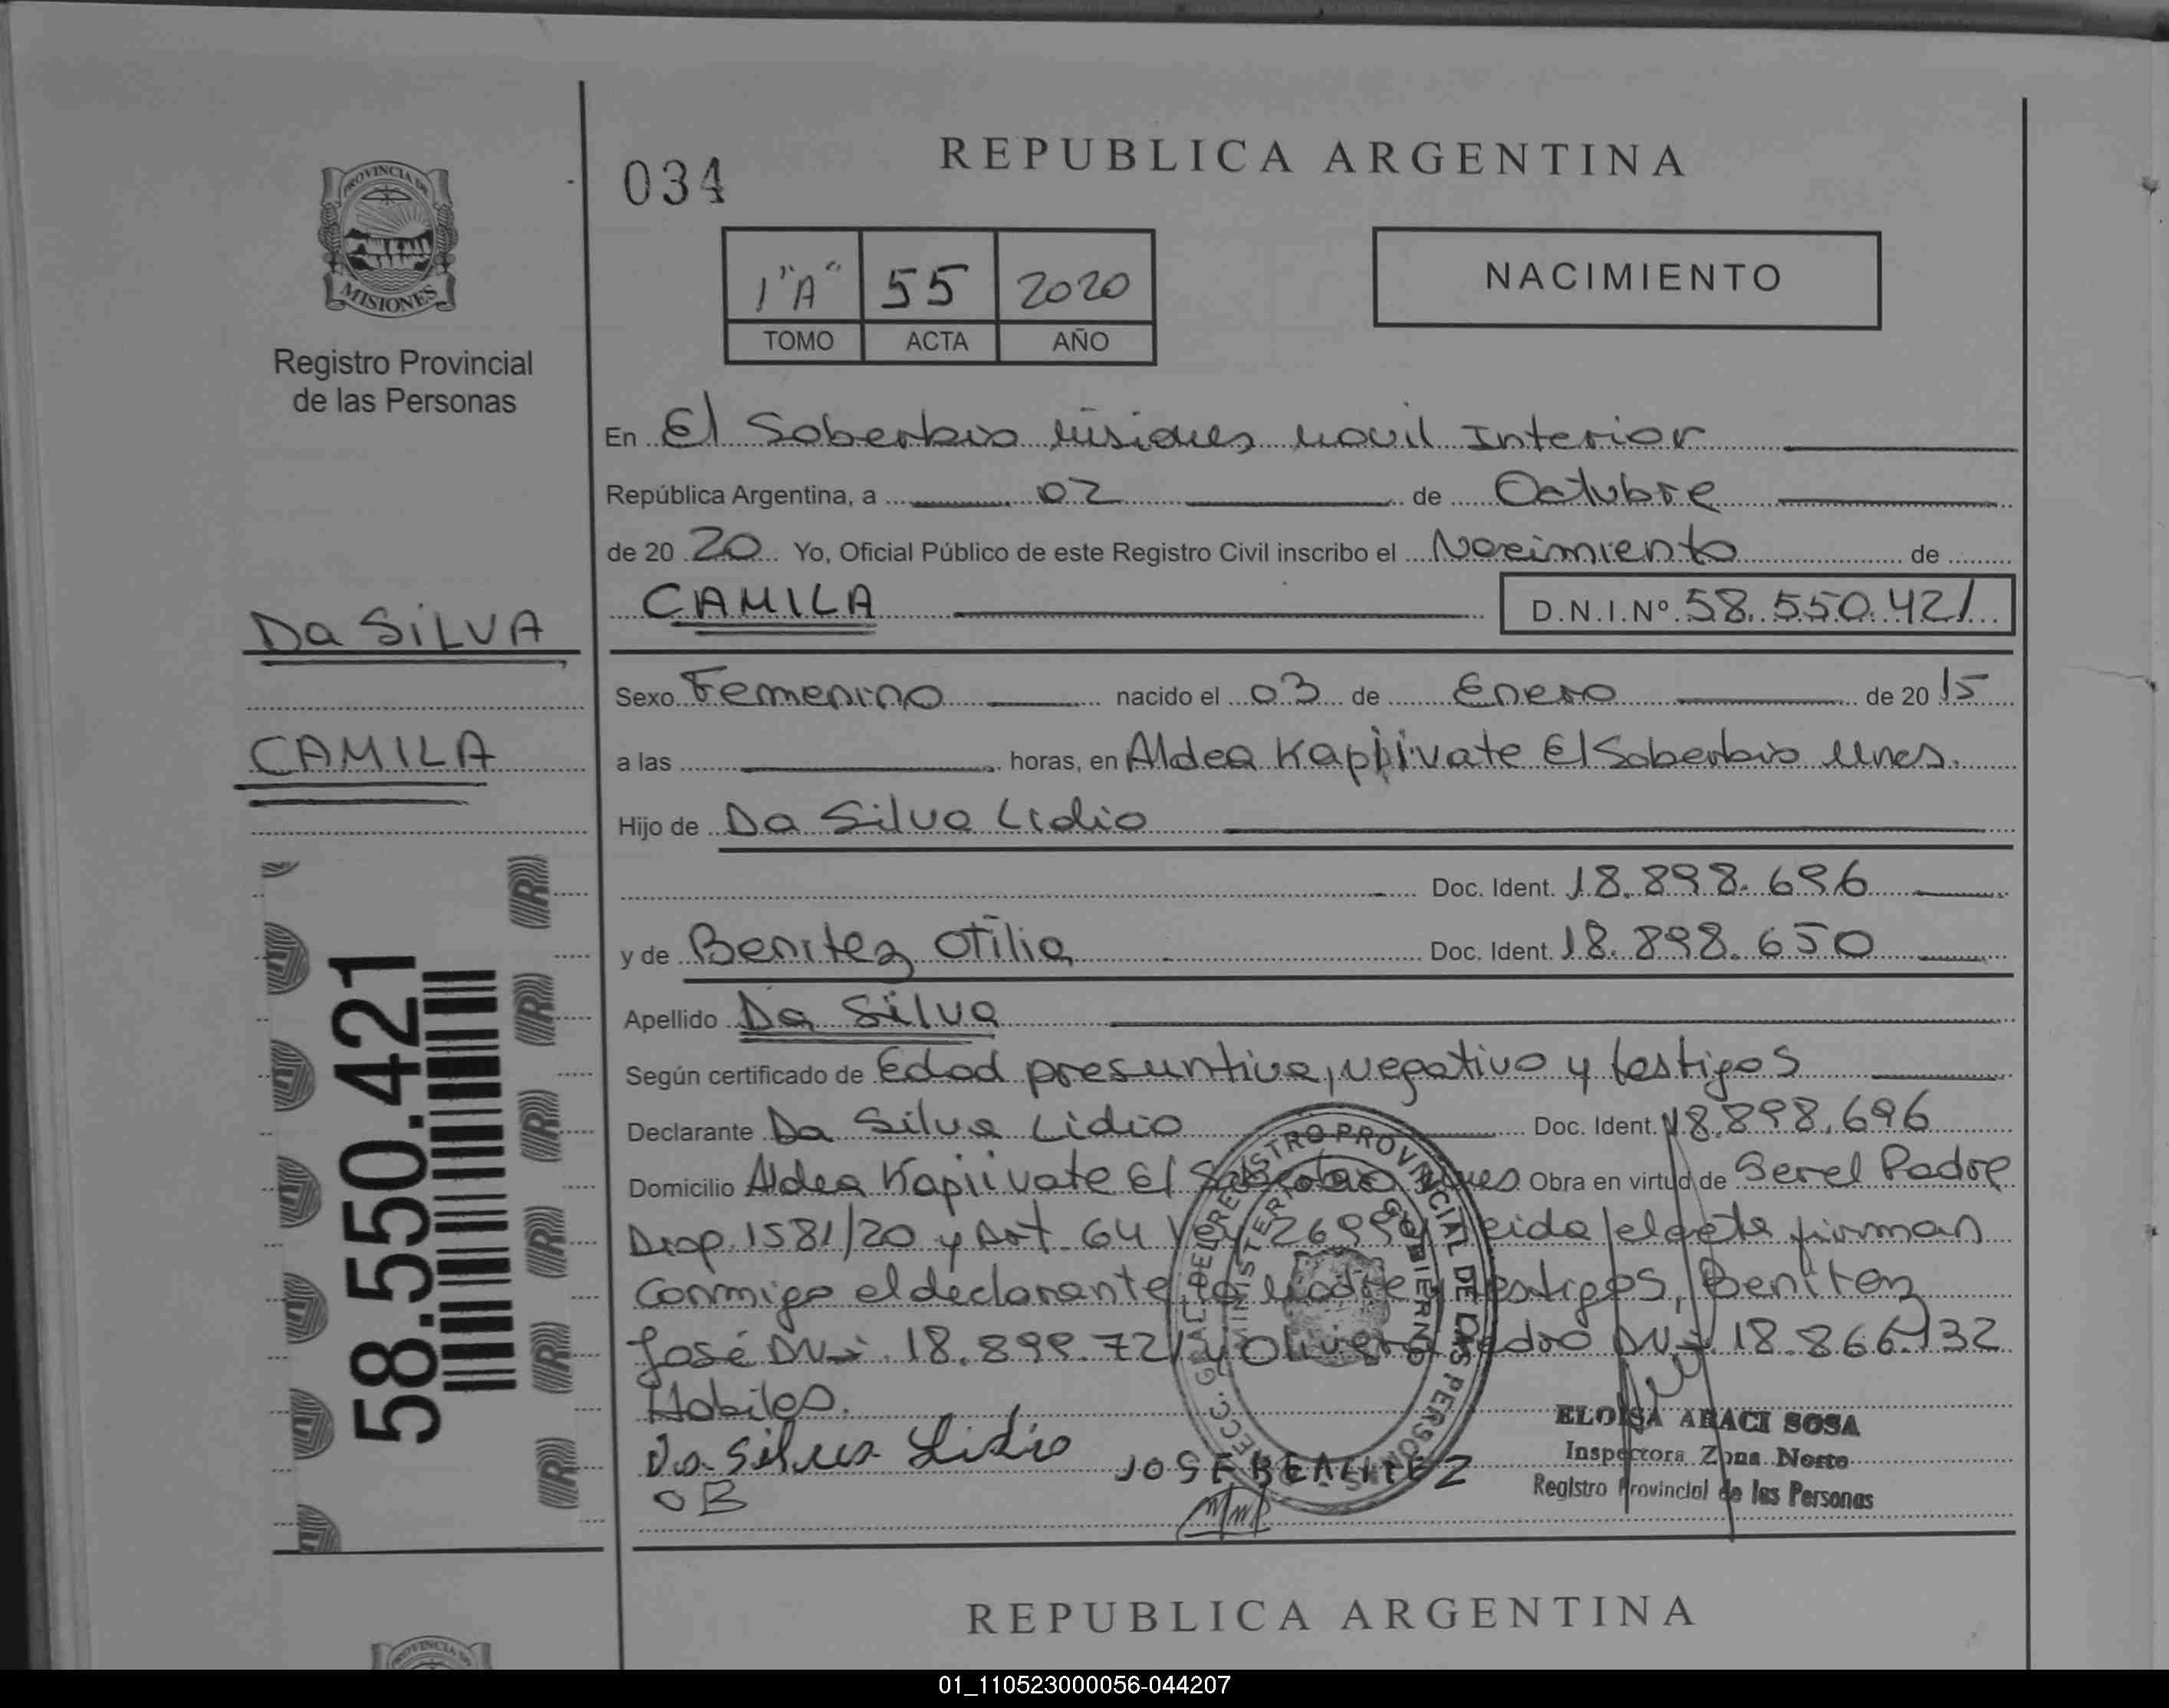 PROVINCIA DE
MISIONES
Registro Provincial
de las Personas
Da SILVA
CAMILA
58.550.421
034
REPUBLICA ARGENTINA
1"A" 55 2020
TOMO ACTA AÑO
NACIMIENTO
En El Soberbio Misiones Movil Interior
República Argentina, a 02 de Octubre
de 20 20 Yo, Oficial Público de este Registro Civil inscribo el Nacimiento de
CAMILA D.N.I.Nº 58.550.421
Sexo Femenino nacido el 03 de Enero de 20 15
a las horas, en Aldea Kapiivate El Soberbio Mnes.
Hijo de Da Silva Lidio
Doc. Ident. 18.898.696
y de Benitez Otilia Doc. Ident. 18.898.650
Apellido Da Silva
Según certificado de Edad presuntiva, negativo y testigos
Declarante Da Silva Lidio Doc. Ident. 18.898.696
Domicilio Aldea Kapiivate El Soberbio Mnes Obra en virtud de Ser el Padre
Disp. 1581/20 y Art. 64 Ley 26994 Leida el acta firman
Conmigo el declarante, la Madre y testigos, Benitez
José DNI: 18.899.721 y Olivera Pedro DNI: 18.866.132
Habiles.
Da Silva Lidio
OB
JOSE BENITEZ
DIRECC. GRAL. DEL REGISTRO PROVINCIAL DE LAS PERSONAS
MINISTERIO GOBIERNO
ELOISA ARACI SOSA
Inspectora Zona Norte
Registro Provincial de las Personas
REPUBLICA ARGENTINA
PROVINCIA
01_110523000056-044207